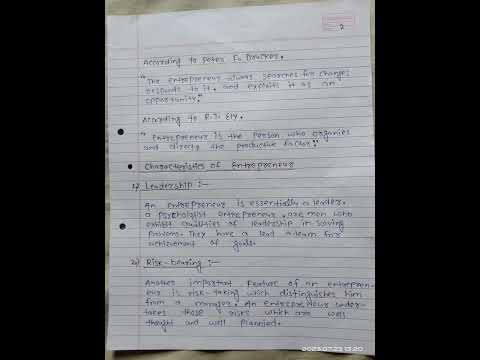 2
According to Peter F. Drucker.
"The entrepreneur always searches for changes
responds to it. and exploits it as an
opportunity."
According to R.T. Ely.
"Entrepreneur is the person who organies
and directly the productive factor."
Characteristics of Entrepreneur
1) Leadership :-
An entrepreneur is essentially a leader.
a psychologist entrepreneur, are men who
exhibit qualities of leadership in solving
problems. They have a lead a team for
achievement of goals.
2) Risk-bearing :-
Another important feature of an entrepren-
eur is risk-taking which distinguishes him
from a manager. An entrepreneur under-
takes those risks which are well
thought and well planned.
2023.07.23 13:20